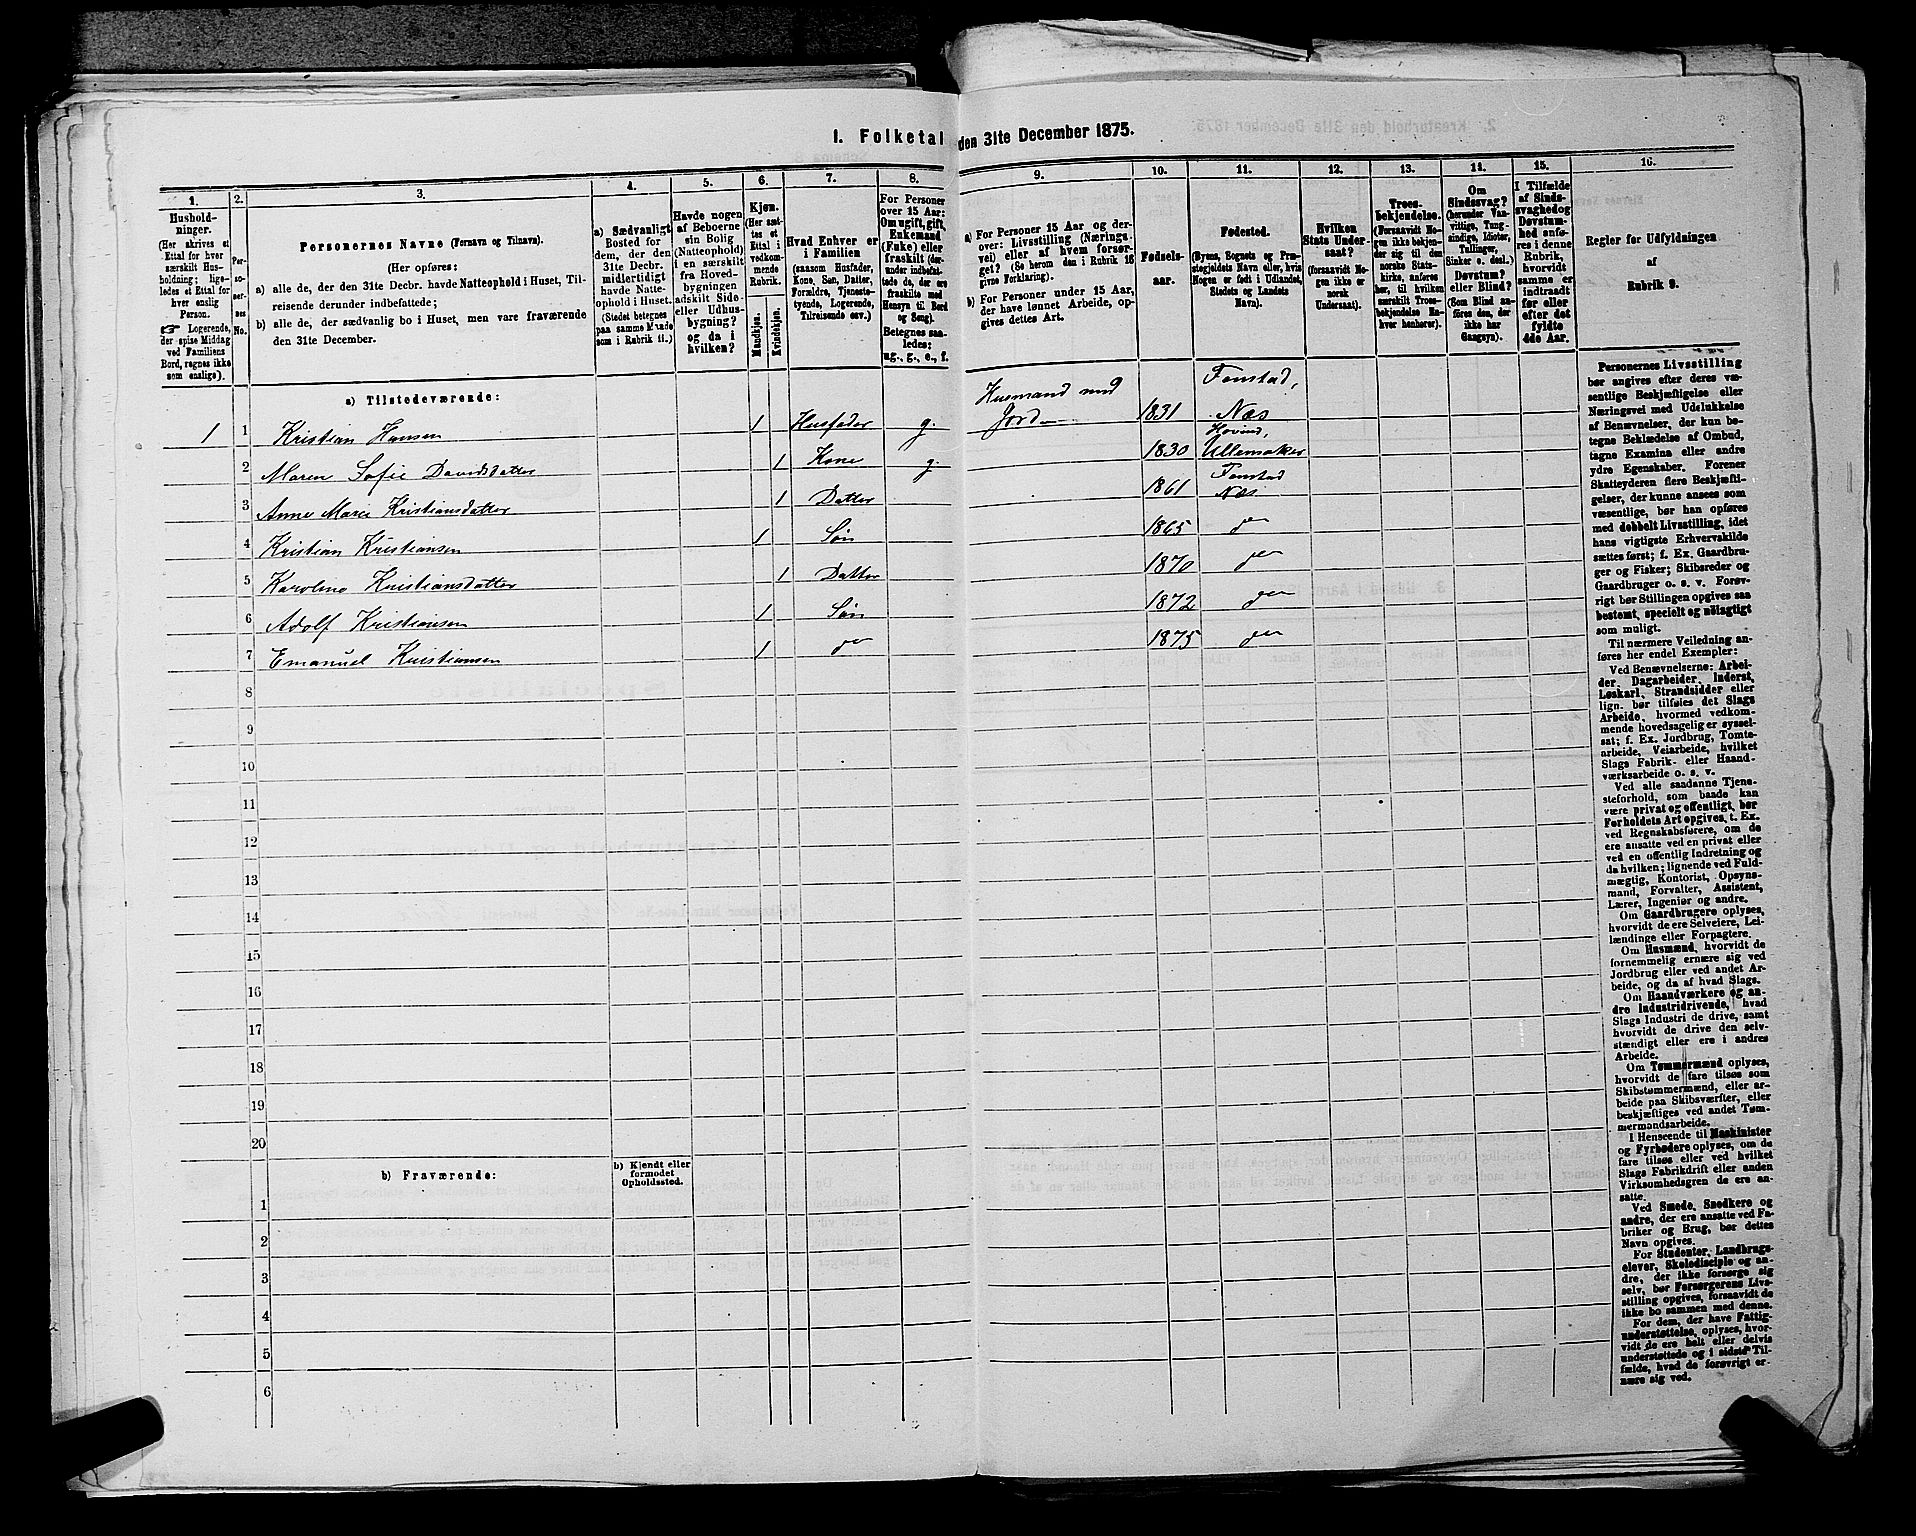 1. Folketal den 31te December 1875.
1.
2.
3.
4.
5.
6.
7.
8.
9.
10.
11.
12.
13.
14.
15.
16.
Hushold-
ninger.
(Her skrives et
Ettal for hver
særskilt Hus-
holdning; lige-
ledes et Ettal for
hver enslig
Person.
☞ Logerende,
der spise Middag
ved Familiens
Bord, regnes ikke
som enslige).
Per-
so-
ner-
nes
No.
Personernes Navne (Fornavn og Tilnavn).
(Her opføres:
a) alle de, der den 31te Decbr. havde Natteophold i Huset, Til-
reisende derunder indbefattede;
b) alle de, der sædvanlig bo i Huset, men vare fraværende
den 31te December.
a) Sædvanligt
Bosted for
dem, der den
31te Decbr.
midlertidigt
havde Natte-
ophold i Huset.
(Stedet betegnes
paa samme Maade
som i Rubrik 11.)
Havde nogen
af Beboerne
sin Bolig
(Natteophold)
i en særskilt
fra Hoved-
bygningen
adskilt Side-
eller Udhus-
bygning?
og da i
hvilken?
Kjøn.
(Her sæt-
tes et
Ettal i
vedkom-
mende
Rubrik.
Mandkjøn.
Kvindekjøn.
Hvad Enhver er
i Familien
(saasom Husfader,
Kone, Søn, Datter,
Forældre, Tjeneste-
tyende, Logerende,
Tilreisende osv.)
For Personer
over 15 Aar:
Om ugift, gift,
Enkemand
(Enke) eller
fraskilt (der-
under indbefat-
tede de, der ere
fraskilte med
Hensyn til Bord
og Seng).
Betegnes saa-
ledes:
ug., g., e., f.
a) For Personer 15 Aar og der-
over: Livsstilling (Nærings-
vei) eller af hvem forsør-
get? (Se herom den i Rubrik 16
givne Forklaring).
b) For Personer under 15 Aar,
der have lønnet Arbeide, op-
gives dettes Art.
Fødsels-
aar.
Fødested.
(Byens, Sognets og Præ-
stegjeldets Navn eller, hvis
Nogen er født i Udlandet,
Stedets og Landets
Navn).
Hvilken
Stats Under-
saat?
(forsaavidt No-
gen ikke er
norsk
Undersaat).
Troes-
bekjendelse.
(Forsaavidt No-
gen ikke bekjen-
der sig til den
norske Stats-
kirke, anføres
her, til hvilken
særskilt Troes-
bekjendelse En-
hver henhører).
Om
Sindssvag?
(herunder Van-
vittige, Tung-
sindige, Idioter,
Tullinger,
Sinker o. desl.)
Døvstum?
eller Blind?
(Som Blind an-
føres den, der
ikke har
Gangsyn).
I Tilfælde
af Sinds-
svaghed og
Døvstum-
hed anfø-
res i denne
Rubrik,
hvorvidt
samme er
indtraadt
før eller
efter det
fyldte
4de Aar.
Regler for Udfyldningen
af
Rubrik 9.
a) Tilstedeværende:
1 1 Kristian Hansen 1 Husfader g. Husmand med Jord 1831 Fonstad, Næs
2 Maren Sofie Davidsdatter 1 Kone g. 1830 Hovind, Ullensaker
3 Anne Marie Kristiansdatter 1 Datter 1861 Fonstad Næs
4 Kristian Kristiansen 1 Søn 1865 do
5 Karoline Kristiansdatter 1 Datter 1870 do
6 Adolf Kristiansen 1 Søn 1872 do
7 Emanuel Kristiansen 1 do 1875 do
8
9
10
11
12
13
14
15
16
17
18
19
20
b) Fraværende:
b) Kjendt eller
formodet
Opholdssted.
1
2
3
4
5
6
Personernes Livsstilling
bør angives efter deres væ-
sentlige Beskjæftigelse eller
Næringsvei med Udelukkelse
af Benævnelser, der kun be-
tegne Beklædelse af Ombud,
tagne Examina eller andre
ydre Egenskaber. Forener
Skatteyderen flere Beskjæfti-
gelser, der kunne ansees som
væsentlige, bør han opføres
med dobbelt Livsstilling, idet
hans vigtigste Erhvervskilde
sættes først; f. Ex. Gaardbru-
ger og Fisker; Skibsreder og
Gaardbruger o. s. v. Forøv-
rigt bør Stillingen opgives saa
bestemt, specielt og nøiagtigt
som muligt.
Til nærmere Veiledning an-
føres her endel Exempler:
Ved Benævnelserne: Arbei-
der, Dagarbeider, Inderst,
Løskarl, Strandsidder eller
lign. bør tilføies det Slags
Arbeide, hvormed vedkom-
mende hovedsagelig er syssel-
sat; f. Ex. Jordbrug, Tomte-
arbeide, Veiarbeide, hvilket
Slags Fabrik- eller Haand-
værksarbeide o. s. v.
Ved alle saadanne Tjene-
steforhold, som baade kan
være privat og offentligt, bør
Forholdets Art opgives, t. Ex.
ved Regnskabsførere, om de
ere ansatte ved en privat eller
ved en offentlig Indretning og
da hvilken; lignende ved Fuld-
mægtig, Kontorist, Opsyns-
mand, Forvalter, Assistent,
Lærer, Ingeniør og andre.
Om Gaardbrugere oplyses,
hvorvidt de ere Selveiere, Lei-
lændinge eller Forpagtere.
Om Husmænd, hvorvidt de
fornemmelig ernære sig ved
Jordbrug eller ved andet Ar-
beide, og da af hvad Slags.
Om Haandværkere og an-
dre Industridrivende, hvad
Slags Industri de drive, samt
hvorvidt de drive den selv-
stændigt eller ere i andres
Arbeide.
Om Tømmermænd oplyses,
hvorvidt de fare tilsøs som
Skibstømmermænd, eller ar-
beide paa Skibsværfter, eller
beskjæftiges ved andet Tøm-
mermandsarbeide.
I Henseende til Maskinister
og Fyrbødere oplyses, om de
fare tilsøs eller ved hvilket
Slags Fabrikdrift eller anden
Virksomhedsgren de ere an-
satte.
Ved Smede, Snedkere og
andre, der ere ansatte ved Fa-
briker og Brug, bør dettes
Navn opgives.
For Studenter, Landbrugs-
elever, Skoledisciple og an-
dre, der ikke forsørge sig
selv, bør Forsørgerens Livs-
stilling opgives, forsaavidt de
ikke bo sammen med denne.
For dem, der have Fattig-
understøttelse, oplyses, hvor-
vidt de ere helt eller delvis
understøttede og i sidste Til-
fælde, hvad de forøvrigt er-
nære sig ved.